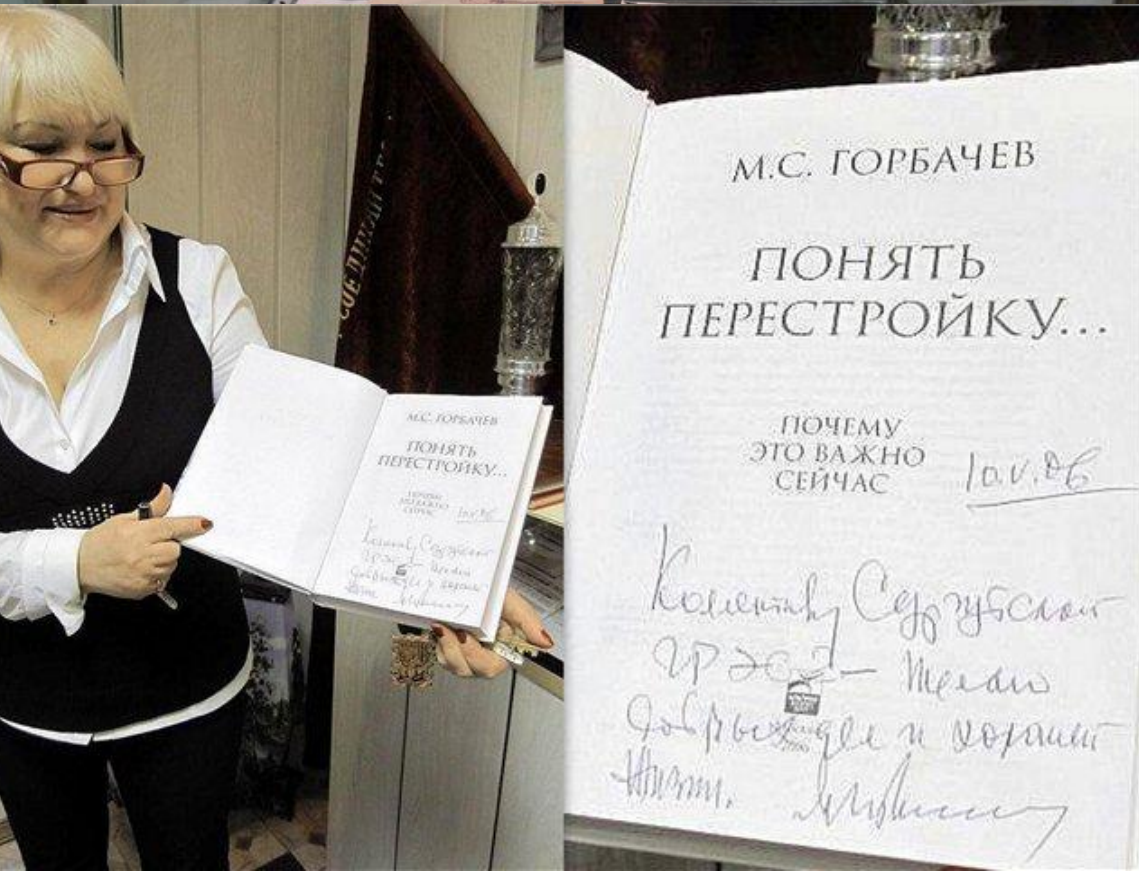 М.С. ГОРБАЧЕВ
ПОНЯТЬ
ПЕРЕСТРОЙКУ...
М.С. ГОРБАЧЕВ
ПОНЯТЬ
ПЕРЕСТРОЙКУ...
ПОЧЕМУ
ЭТО ВАЖНО
СЕЙЧАС
10.V.06
Коллективу Сургутской
ГРЭС-2 – Желаю
добрых дел и хорошей
жизни.